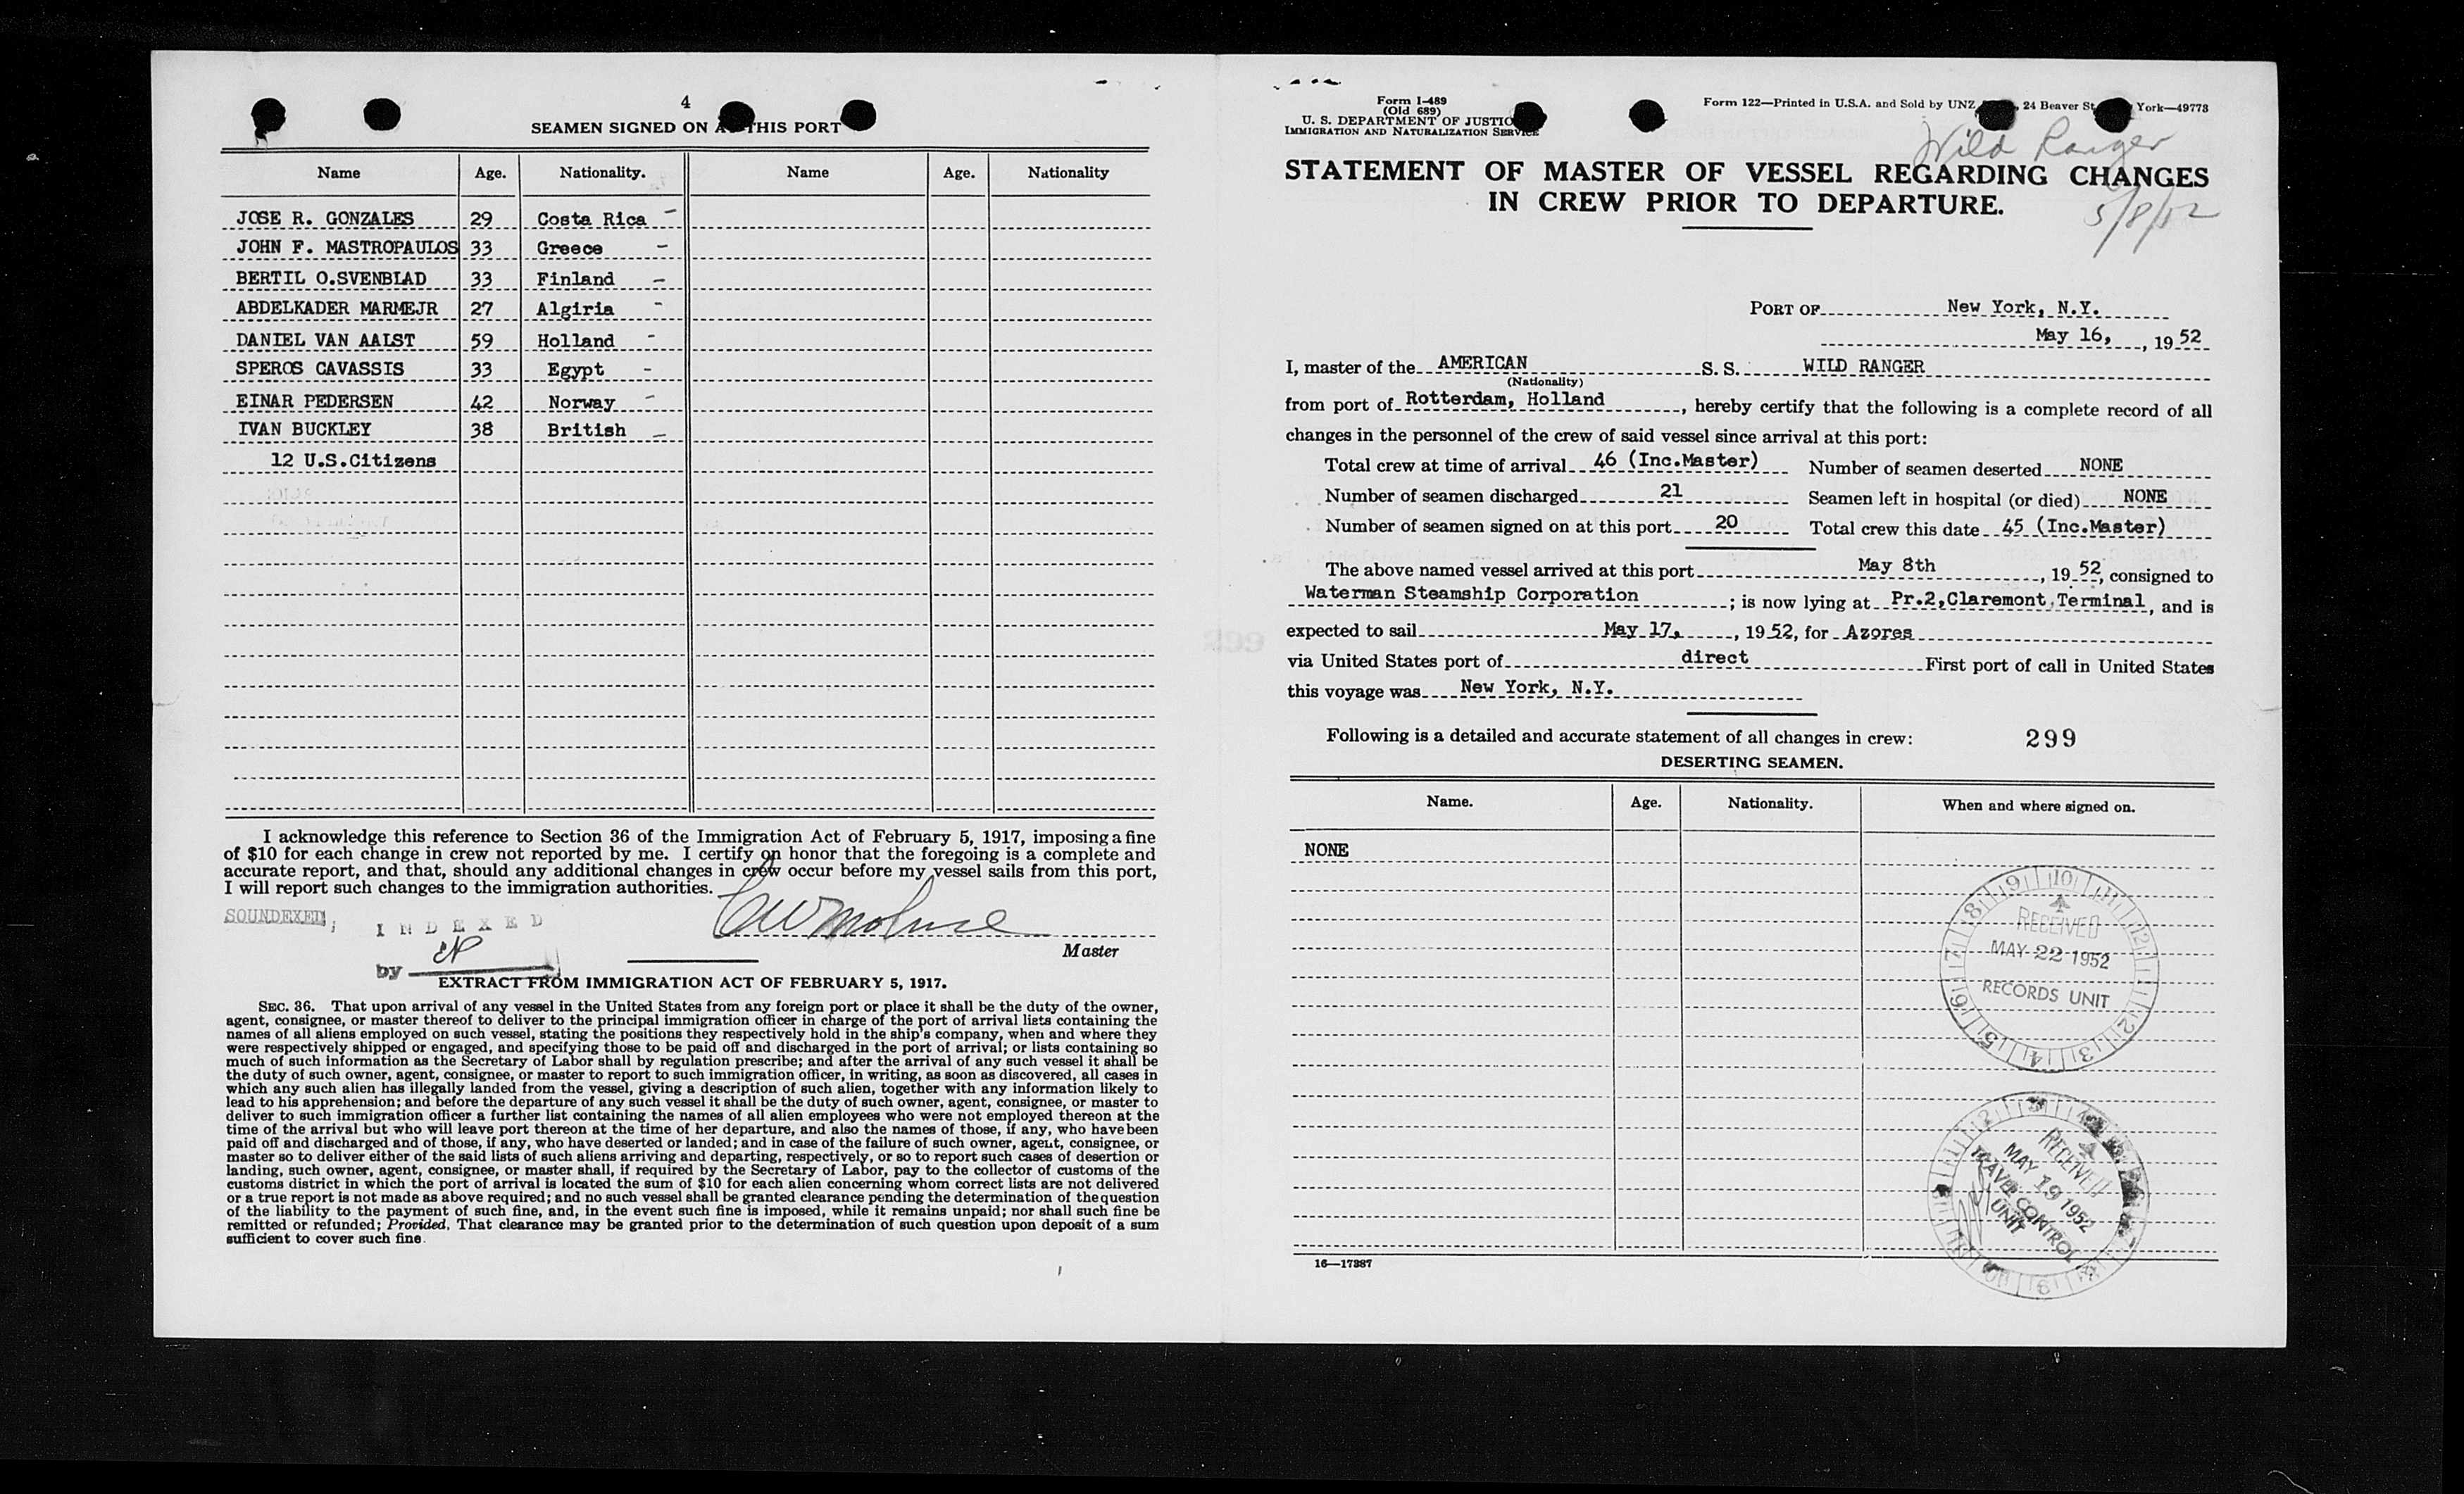 4
SEAMEN SIGNED ON A THIS PORT
Name Age. Nationality. Name Age. Nationality
JOSE R. GONZALES 29 Costa Rica -
JOHN F. MASTROPAULOS 33 Greece -
BERTIL O.SVENBLAD 33 Finland -
ABDELKADER MARMEJR 27 Algiria -
DANIEL VAN AALST 59 Holland -
SPEROS CAVASSIS 33 Egypt -
EINAR PEDERSEN 42 Norway -
IVAN BUCKLEY 38 British -
12 U.S.Citizens
I acknowledge this reference to Section 36 of the Immigration Act of February 5, 1917, imposing a fine
of $10 for each change in crew not reported by me. I certify on honor that the foregoing is a complete and
accurate report, and that, should any additional changes in crew occur before my vessel sails from this port,
I will report such changes to the immigration authorities.
SOUNDEXED;
INDEXED
by
Master
EXTRACT FROM IMMIGRATION ACT OF FEBRUARY 5, 1917.
SEC. 36. That upon arrival of any vessel in the United States from any foreign port or place it shall be the duty of the owner,
agent, consignee, or master thereof to deliver to the principal immigration officer in charge of the port of arrival lists containing the
names of all aliens employed on such vessel, stating the positions they respectively hold in the ship's company, when and where they
were respectively shipped or engaged, and specifying those to be paid off and discharged in the port of arrival; or lists containing so
much of such information as the Secretary of Labor shall by regulation prescribe; and after the arrival of any such vessel it shall be
the duty of such owner, agent, consignee, or master to report to such immigration officer, in writing, as soon as discovered, all cases in
which any such alien has illegally landed from the vessel, giving a description of such alien, together with any information likely to
lead to his apprehension; and before the departure of any such vessel it shall be the duty of such owner, agent, consignee, or master to
deliver to such immigration officer a further list containing the names of all alien employees who were not employed thereon at the
time of the arrival but who will leave port thereon at the time of her departure, and also the names of those, if any, who have been
paid off and discharged and of those, if any, who have deserted or landed; and in case of the failure of such owner, agent, consignee, or
master so to deliver either of the said lists of such aliens arriving and departing, respectively, or so to report such cases of desertion or
landing, such owner, agent, consignee, or master shall, if required by the Secretary of Labor, pay to the collector of customs of the
customs district in which the port of arrival is located the sum of $10 for each alien concerning whom correct lists are not delivered
or a true report is not made as above required; and no such vessel shall be granted clearance pending the determination of the question
of the liability to the payment of such fine, and, in the event such fine is imposed, while it remains unpaid; nor shall such fine be
remitted or refunded; Provided, That clearance may be granted prior to the determination of such question upon deposit of a sum
sufficient to cover such fine.
Form I-489
(Old 689)
U. S. DEPARTMENT OF JUSTIC
IMMIGRATION AND NATURALIZATION SERVICE
Form 122—Printed in U.S.A. and Sold by UNZ , 24 Beaver St York—49773
Wild Ranger
STATEMENT OF MASTER OF VESSEL REGARDING CHANGES
IN CREW PRIOR TO DEPARTURE.
5/8/52
PORT OF New York, N.Y.
May 16, , 19 52
I, master of the AMERICAN S. S. WILD RANGER
(Nationality)
from port of Rotterdam, Holland , hereby certify that the following is a complete record of all
changes in the personnel of the crew of said vessel since arrival at this port:
Total crew at time of arrival 46 (Inc.Master) Number of seamen deserted NONE
Number of seamen discharged 21 Seamen left in hospital (or died) NONE
Number of seamen signed on at this port 20 Total crew this date 45 (Inc.Master)
The above named vessel arrived at this port May 8th , 19 52, consigned to
Waterman Steamship Corporation ; is now lying at Pr.2,Claremont Terminal, and is
expected to sail May 17, , 19 52, for Azores
via United States port of direct First port of call in United States
this voyage was New York, N.Y.
Following is a detailed and accurate statement of all changes in crew: 299
DESERTING SEAMEN.
Name. Age. Nationality. When and where signed on.
NONE
RECEIVED
MAY 22 1952
RECORDS UNIT
RECEIVED
MAY 19 1952
TRAVEL CONTROL
UNIT
16—17387